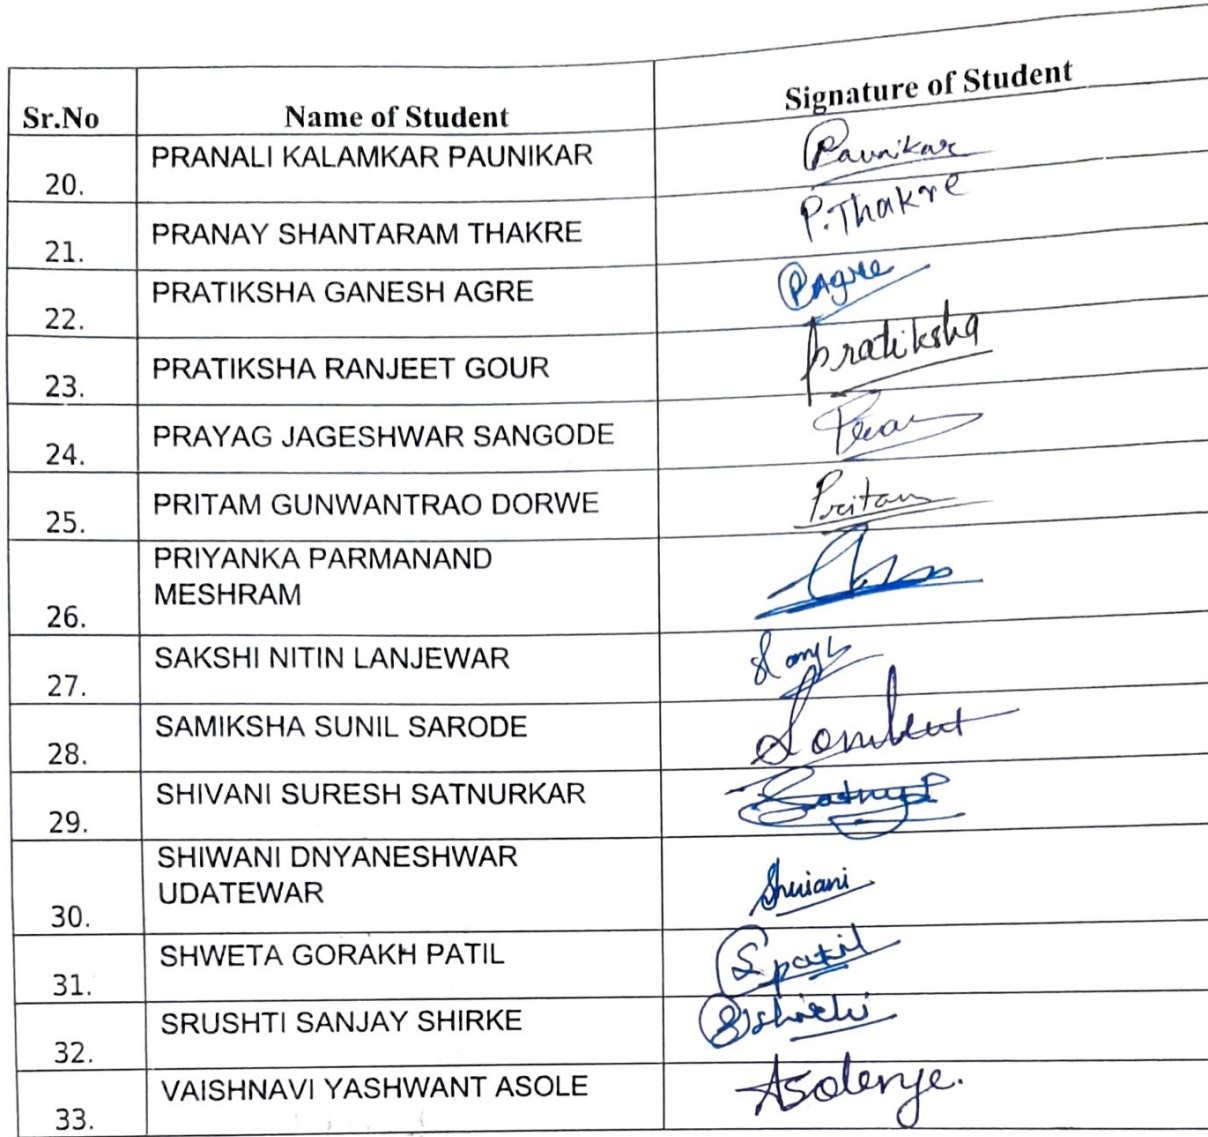 Sr.No Name of Student Signature of Student
20. PRANALI KALAMKAR PAUNIKAR Paunikar
21. PRANAY SHANTARAM THAKRE P.Thakre
22. PRATIKSHA GANESH AGRE PAgre
23. PRATIKSHA RANJEET GOUR Pratiksha
24. PRAYAG JAGESHWAR SANGODE
25. PRITAM GUNWANTRAO DORWE Pritam
PRIYANKA PARMANAND
26. MESHRAM
27. SAKSHI NITIN LANJEWAR
28. SAMIKSHA SUNIL SARODE
29. SHIVANI SURESH SATNURKAR
SHIWANI DNYANESHWAR
30. UDATEWAR Shiwani
31. SHWETA GORAKH PATIL Spatil
32. SRUSHTI SANJAY SHIRKE
33. VAISHNAVI YASHWANT ASOLE